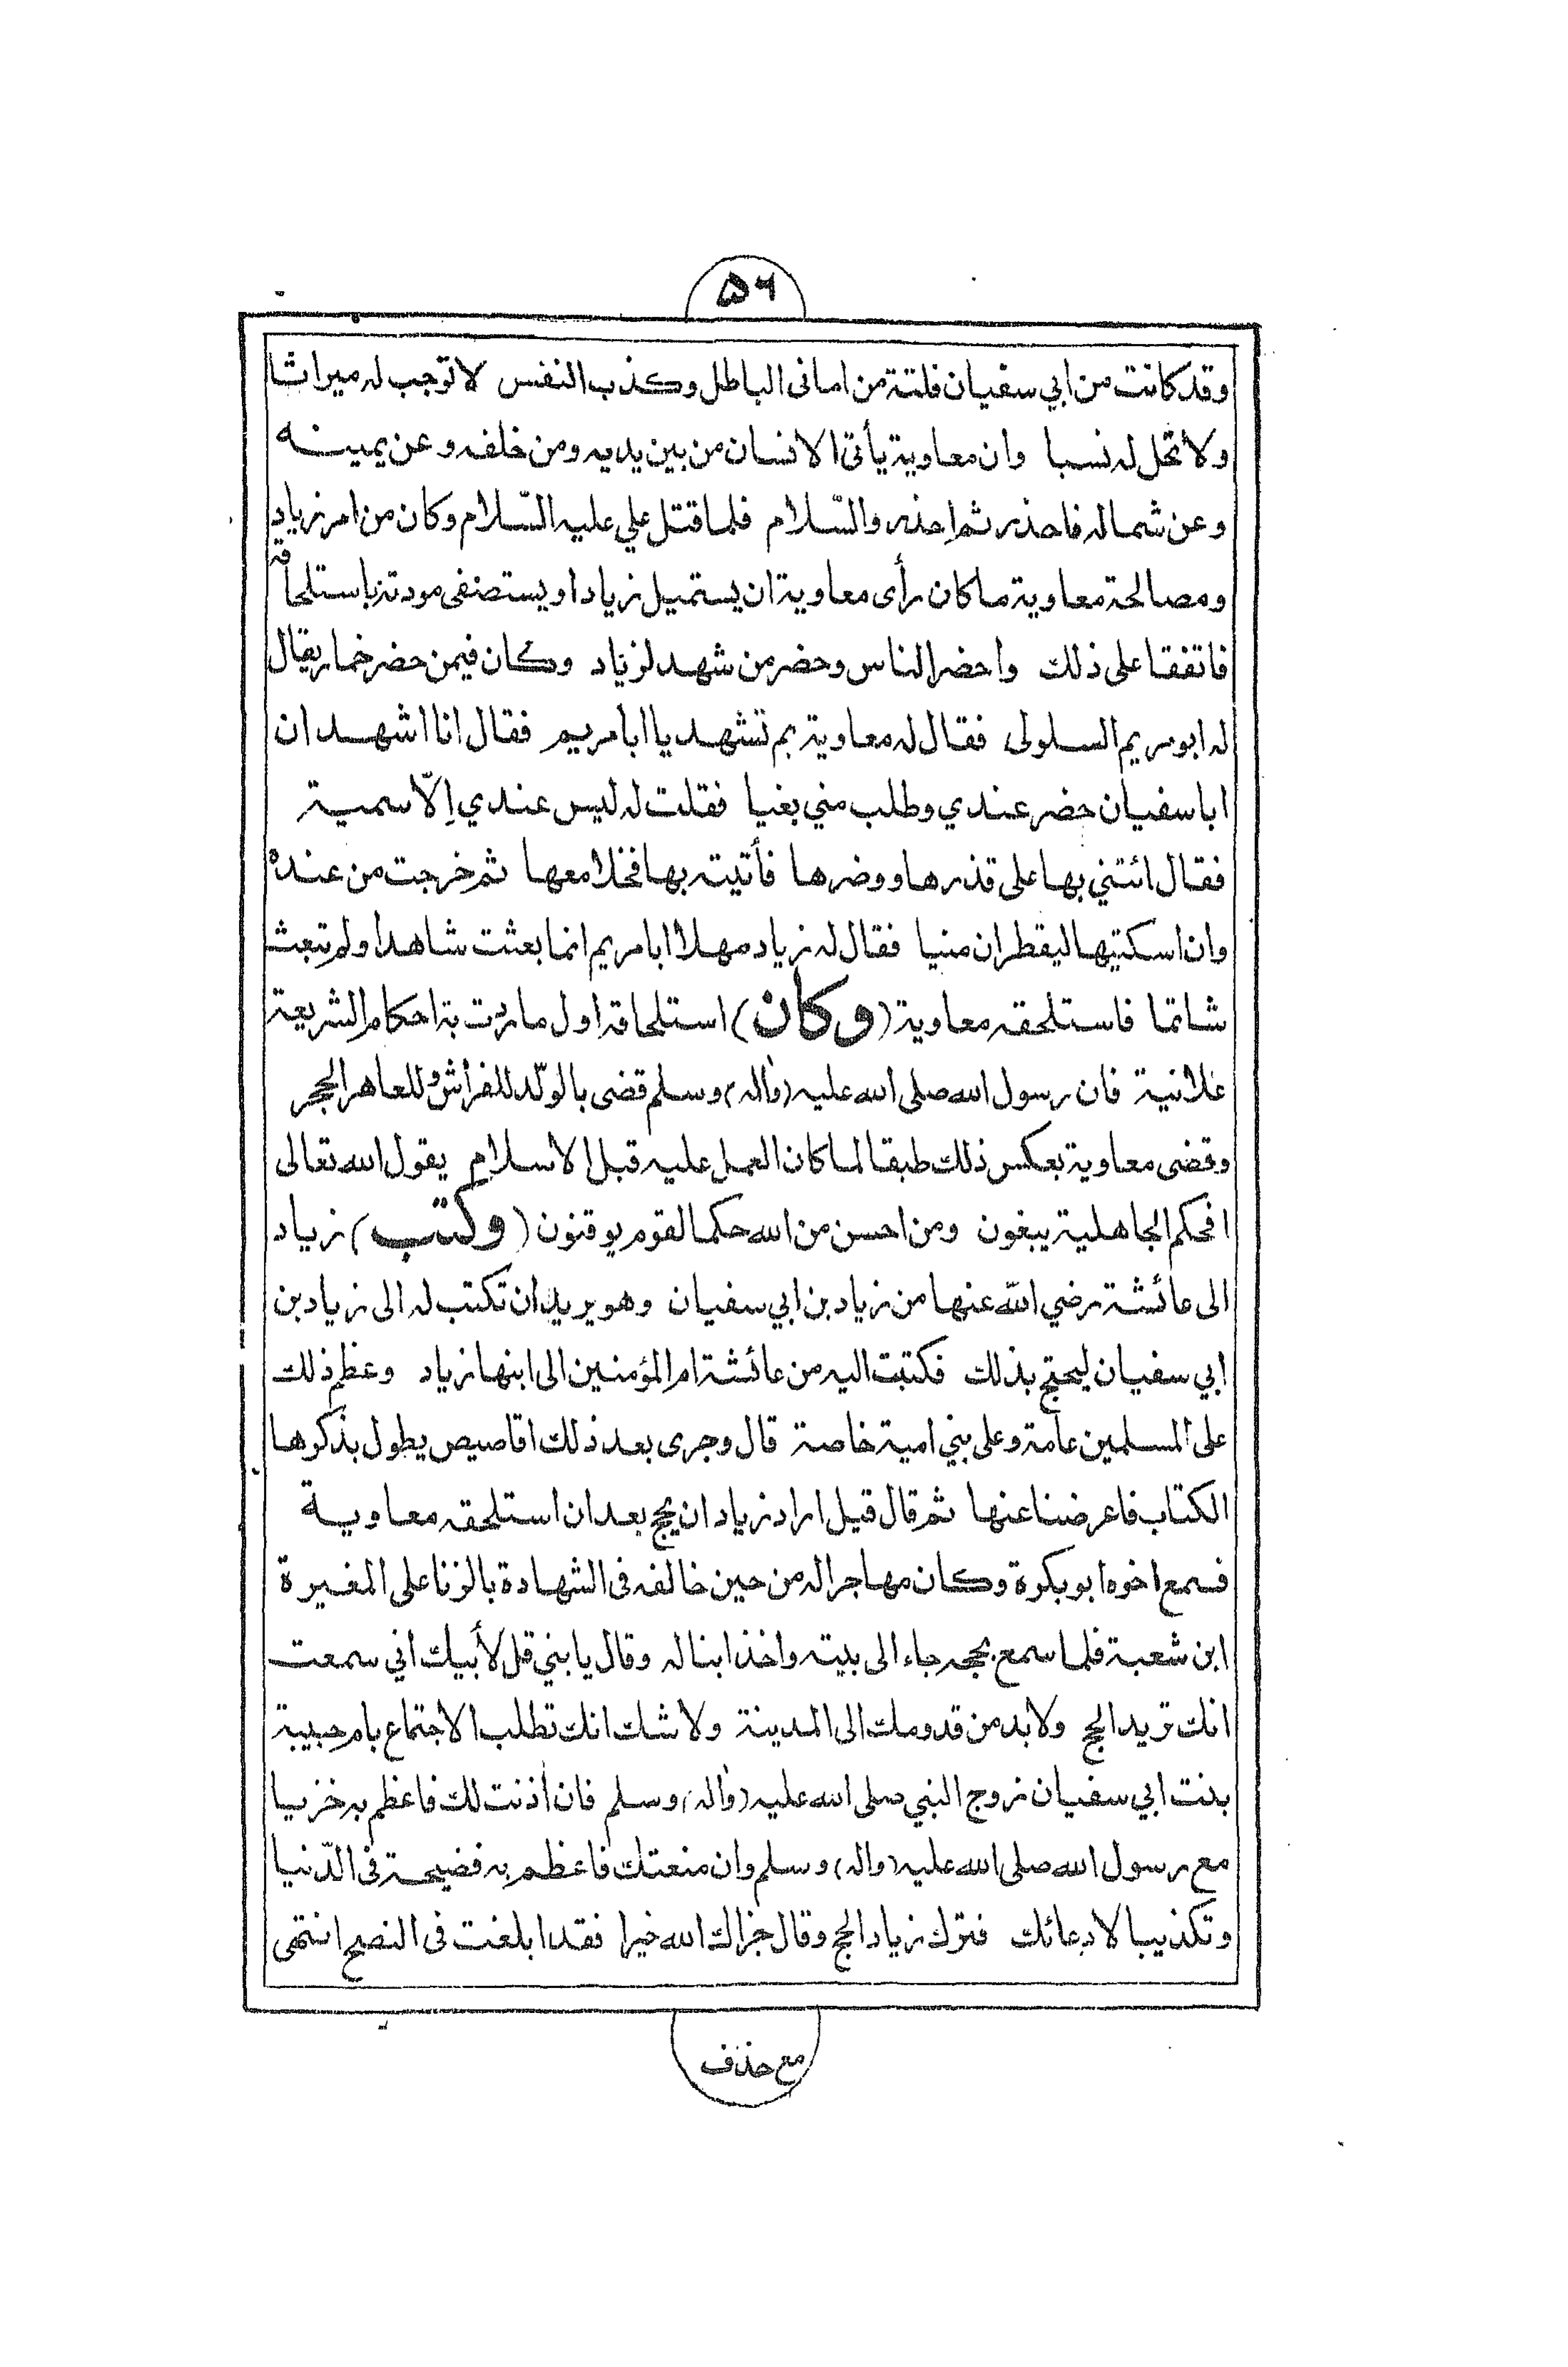 ۵۶
وقد كانت من ابي سفيان فلتة من اماني الباطل وكذب النفس لا توجب له ميراثا
ولا تحل له نسبا وان معاوية يأتى الانسان من بين يديه ومن خلفه وعن يمينه
وعن شماله فاحذره ثم احذره والسّلام فلما قتل علي عليه السّلام وكان من امر زياد
ومصالحة معاوية ما كان رأى معاوية ان يستميل زيادا ويستصفى مودته باستلحاقه
فاتفقا على ذلك واحضر الناس وحضر من شهد لزياد وكان فيمن حضر خمار يقال
له ابو مريم السلولى فقال له معاوية بم تشهد يا ابا مريم فقال انا اشهد ان
ابا سفيان حضر عندي وطلب مني بغيا فقلت له ليس عندي اِلّا سمية
فقال ائتني بها على قذرها ووضرها فأتيته بها فخلا معها ثم خرجت من عنده
وان اسكتيها ليقطران منيا فقال له زياد مهلا ابا مريم انما بعثت شاهدا ولم تبعث
شاتما فاستلحقه معاوية (وكان) استلحاقه اول ما ردت به احكام الشريعة
علانية فان رسول الله صلى الله عليه (واله) وسلم قضى بالولد للفراش وللعاهر الحجر
وقضى معاوية بعكس ذلك طبقا لما كان العمل عليه قبل الاسلام يقول الله تعالى
افحكم الجاهلية يبغون ومن احسن من الله حكما لقوم يوقنون (وكتب) زياد
الى عائشة رضي الله عنها من زياد بن ابي سفيان وهو يريد ان تكتب له الى زياد بن
ابي سفيان ليحتج بذلك فكتبت اليه من عائشة ام المؤمنين الى ابنها زياد وعظم ذلك
على المسلمين عامة وعلى بني امية خاصة قال وجرى بعد ذلك اقاصيص يطول بذكرها
الكتاب فاعرضنا عنها ثم قال قيل اراد زياد ان يحج بعد ان استلحقه معاوية
فسمع اخوه ابو بكرة وكان مهاجرا له من حين خالفه فى الشهادة بالزنا على المغيرة
ابن شعبة فلما سمع بحجه جاء الى بيته واخذ ابنا له وقال يا بني قل لأبيك اني سمعت
انك تريد الحج ولا بد من قدومك الى المدينة ولا شك انك تطلب الاجتماع بام حبيبة
بنت ابي سفيان زوج النبي صلى الله عليه (واله) وسلم فان أذنت لك فاعظم به خزيا
مع رسول الله صلى الله عليه (واله) وسلم وان منعتك فاعظم به فضيحة فى الدّنيا
وتكذيبا لادعائك فترك زياد الحج وقال جزاك الله خيرا فقد ابلغت فى النصح انتهى
مع حذف